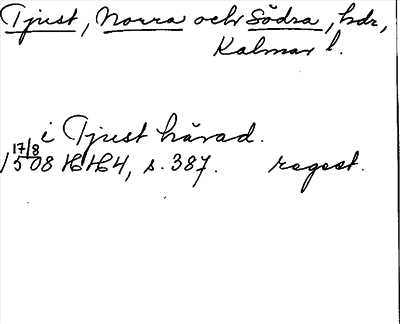 Tjust, Norra och Södra, hdr,
Kalmar l.
i Tjust härad.
17/8
1508 HH4, s. 387. regest.